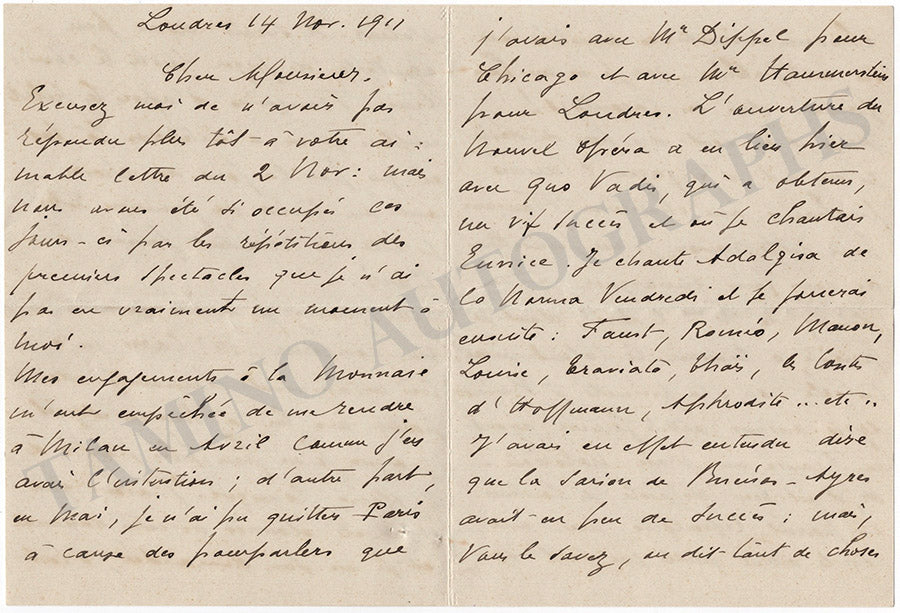 Londres 14 Nov. 1911
Cher Monsieur.
Excusez moi de n'avoir pas
répondu plus tôt à votre ai-
mable lettre du 2 Nov: mais
nous avons été si occupés ces
jours-ci par les répétitions des
premiers spectacles que je n'ai
pas eu vraiment un moment à
moi.
Mes engagements à la Monnaie
m'ont empêchée de me rendre
à Milan en Avril comme j'en
avais l'intention; d'autre part,
en Mai, je n'ai pu quitter Paris
à cause des pourparlers que
j'avais avec Mr Dippel pour
Chicago et avec Mr Hammerstein
pour Londres. L'ouverture du
Nouvel Opéra a eu lieu hier
avec Quo Vadis, qui a obtenu,
un vif succès et où je chantais
Eunice. Je chante Adalgisa de
la Norma Vendredi et je
ensuite: Faust, Roméo, Manon,
Louise, Traviata, Thaïs, les Contes
d'Hoffmann, Aphrodite...etc..
J'avais en effet entendu dire
que la saison de Buenos-Ayres
avait eu peu de succès; mais,
vous le savez, on dit tant de choses
TAMINO AUTOGRAPHS